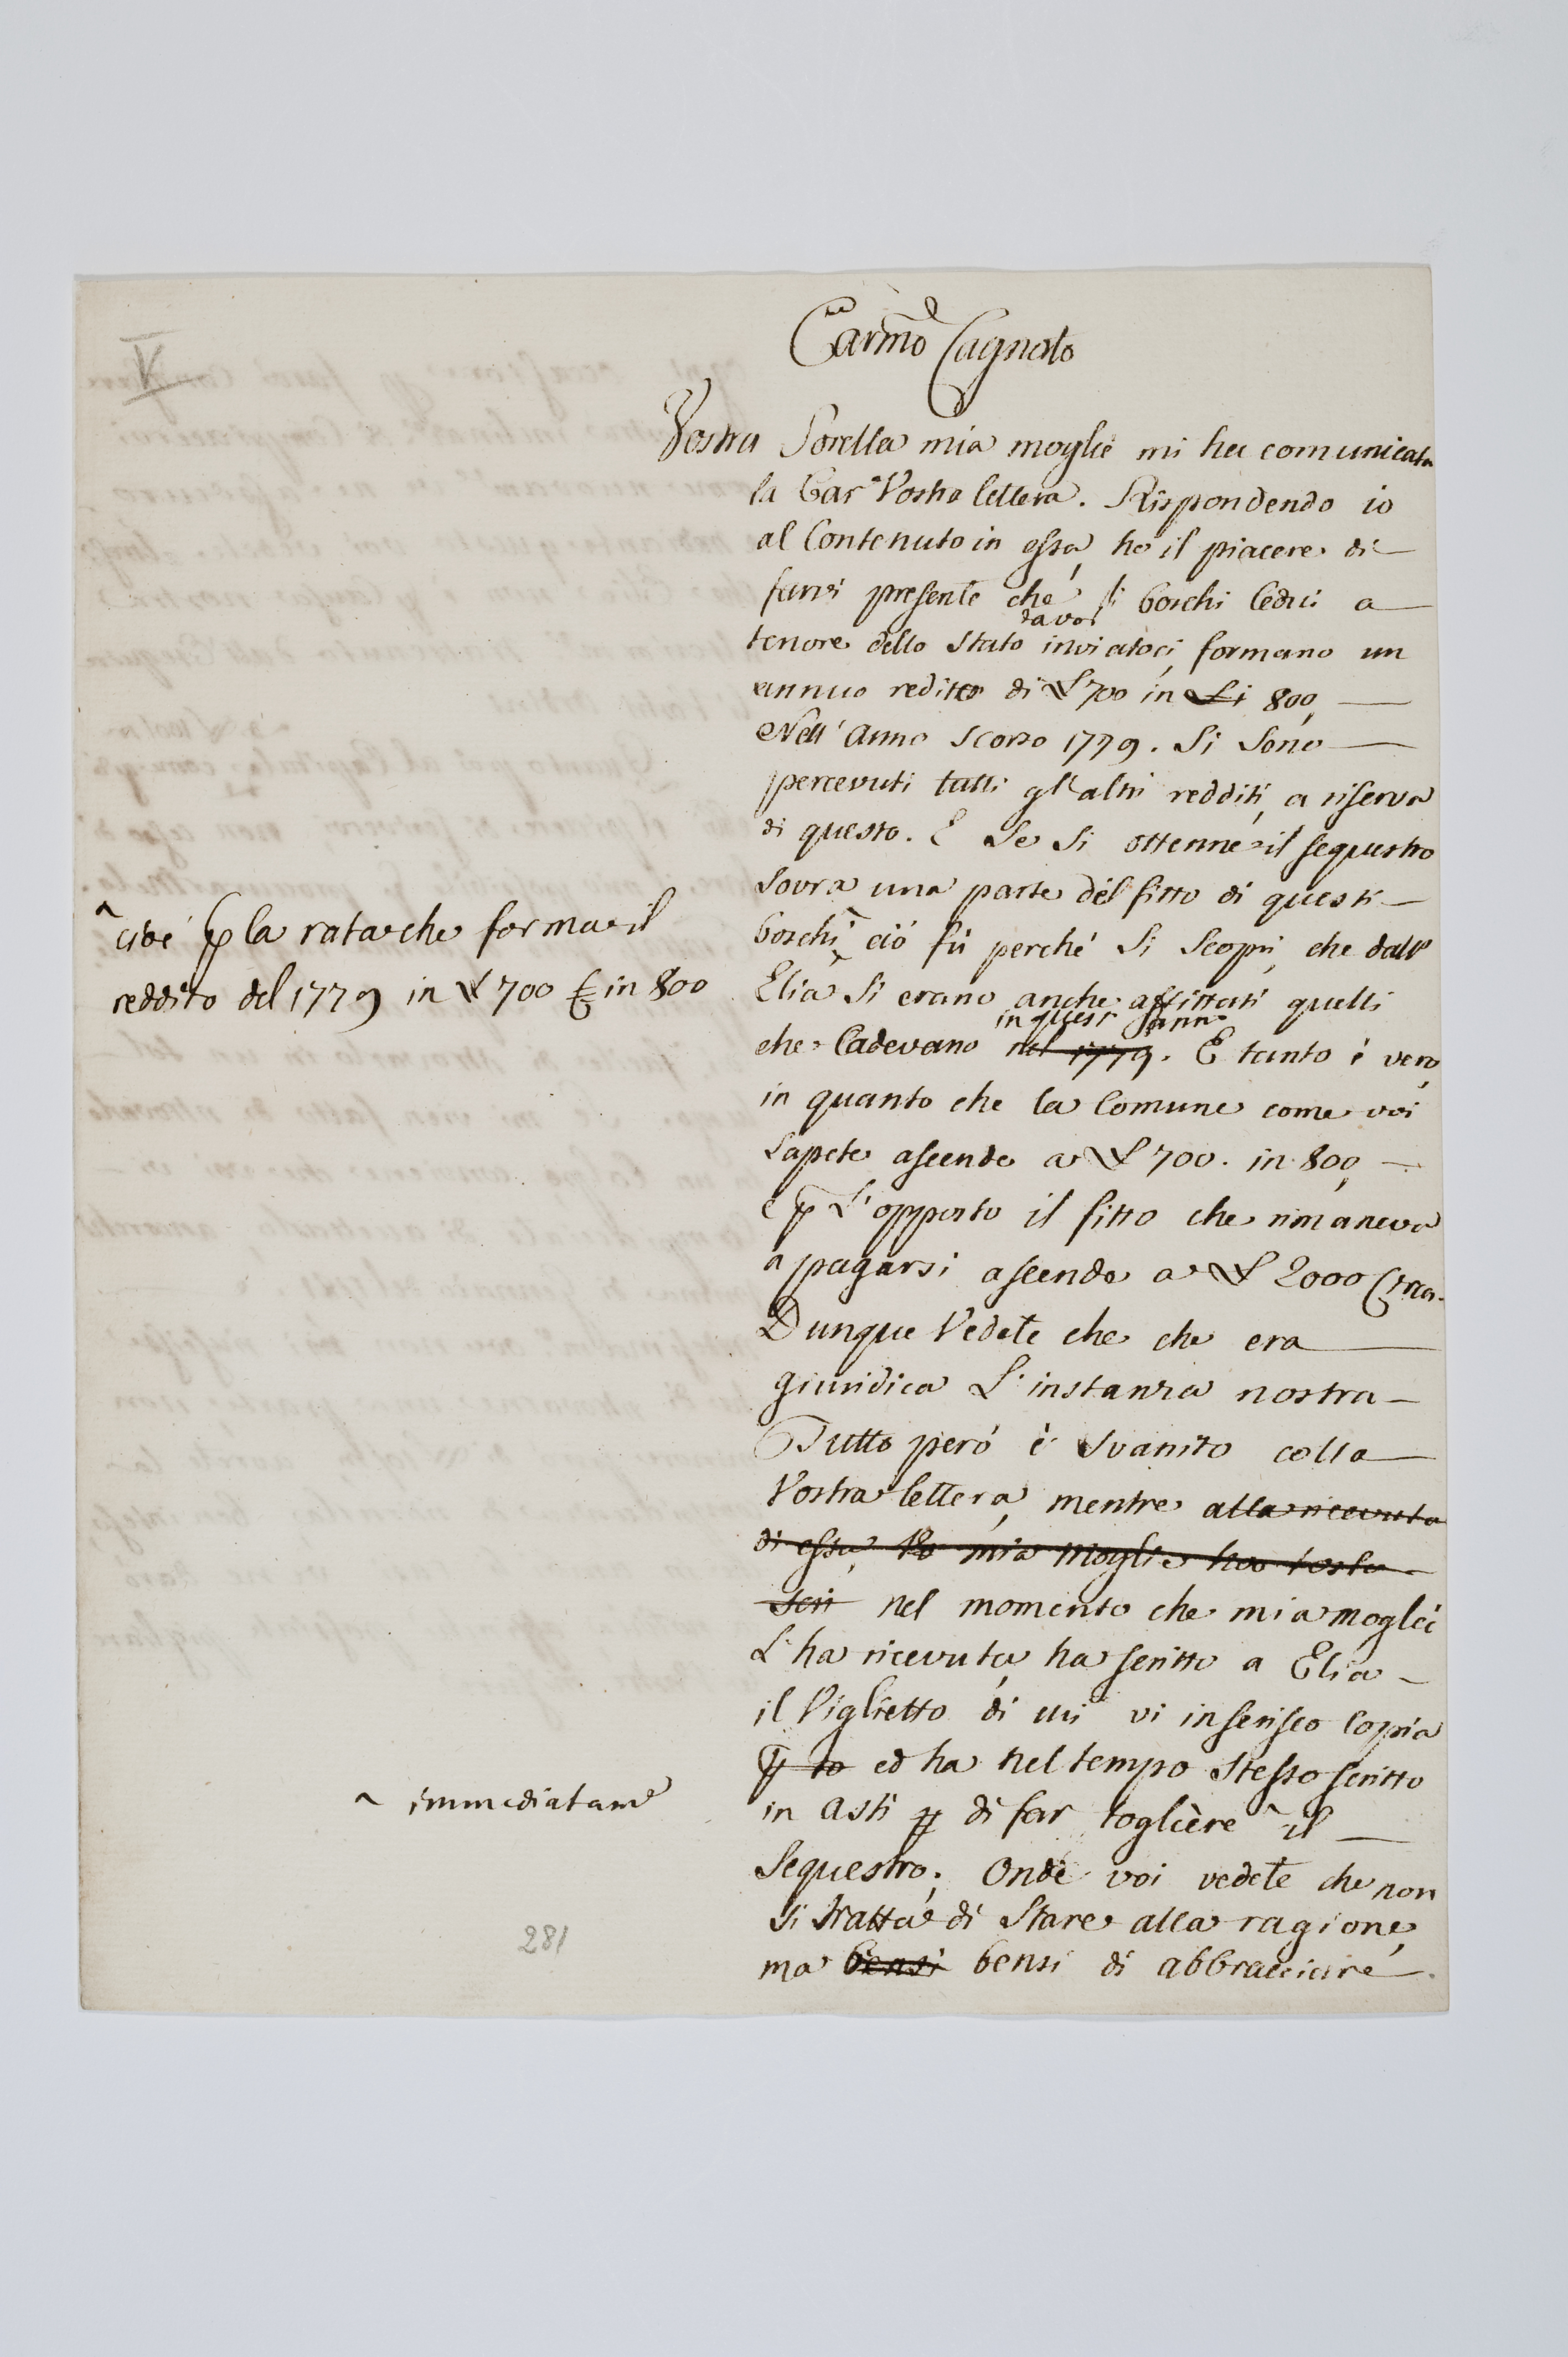 V
Carmo Cagnato
Vostra Sorella mia moglie mi ha comunicata
la Car.a Vostra lettera. Rispondendo io
al Contenuto in essa, ho il piacere di
farvi presente che li boschi Cedui a
da voi
tenore dello Stato inviatoci, formano un
annuo redito di L 700 in Li 800,
Nell' Anno scorso 1779. Si Sono
percevuti tutti gl'altri redditi, a riserva
di questo. E Se Si ottenne il sequestro
Sovra una parte del fitto di questi
^ cioè p la rata che forma il
boschi ^ ciò fù perché Si Scoprì, che dall'
reddito del 1779 in L 700 in 800
Elia Si erano anche affittati quelli
in quest' anno
che Cadevano nel 1779. E tanto è vero,
in quanto che la Comune come voi
Sapete ascende a L 700. in 800,
e p L'opposto il fitto che rimaneva
a pagarsi ascende a L 2000 Circa.
Dunque Vedete che che era
giuridica L'instanza nostra
Tutto però è Svanito colla
Vostra lettera, mentre alla ricevuta
di essa, mia moglie ha tosto
scri nel momento che mia moglei
L'ha ricevuta, ha scritto a Elia
il Viglietto di cui vi inserisco Copia
p to ed ha nel tempo Stesso scritto
^ immediatame
in Asti p di far togliere ^ il
Sequestro; Onde voi vedete che non
Si tratta di Stare alla ragione,
281
ma bensi bensi di abbracciare